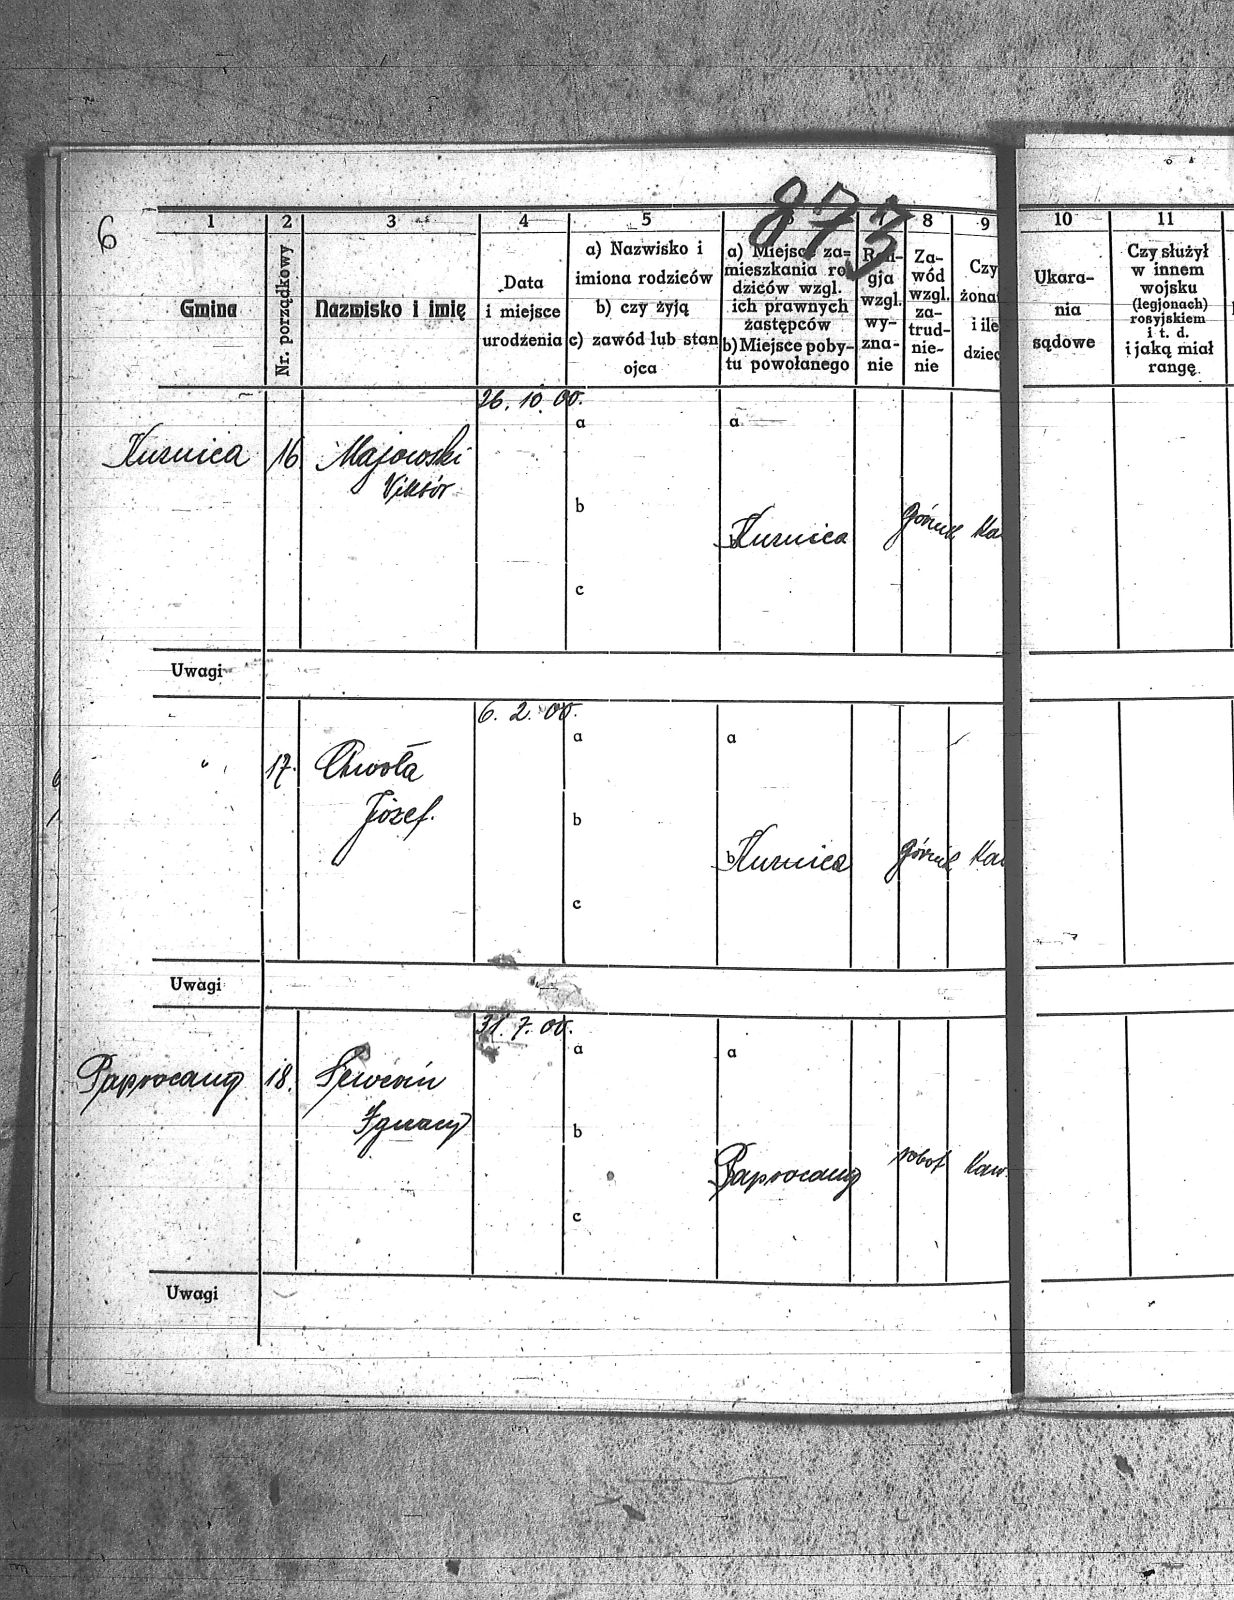 6
873
1
2
3
4
5
8
9
10
11
Gmina
Nr. porządkowy
Nazwisko i imię
Data
i miejsce
urodzenia
a) Nazwisko i
imiona rodziców
b) czy żyją
c) zawód lub stan
ojca
a) Miejsce za=
mieszkania ro
dziców wzgl.
ich prawnych
zastępców
b) Miejsce poby-
tu powołanego
gja
wzgl.
wy-
zna-
nie
Za-
wód
wzgl.
za-
trud-
nie-
nie
Czy
żona
i ile
dziec
Ukara-
nia
sądowe
Czy służył
w innem
wojsku
(legjonach)
rosyjskiem
i t. d.
i jaką miał
rangę
26. 10. 00.
a
a
16
Majowski
Viktór
b
b
górnik
c
Uwagi
6. 2. 00.
a
a
" 17.
Józef.
b
b
górnik
c
Uwagi
31. 7. 00.
a
a
Paprocany 18.
Ignacy
b
Paprocany robot Kaw.
c
Uwagi